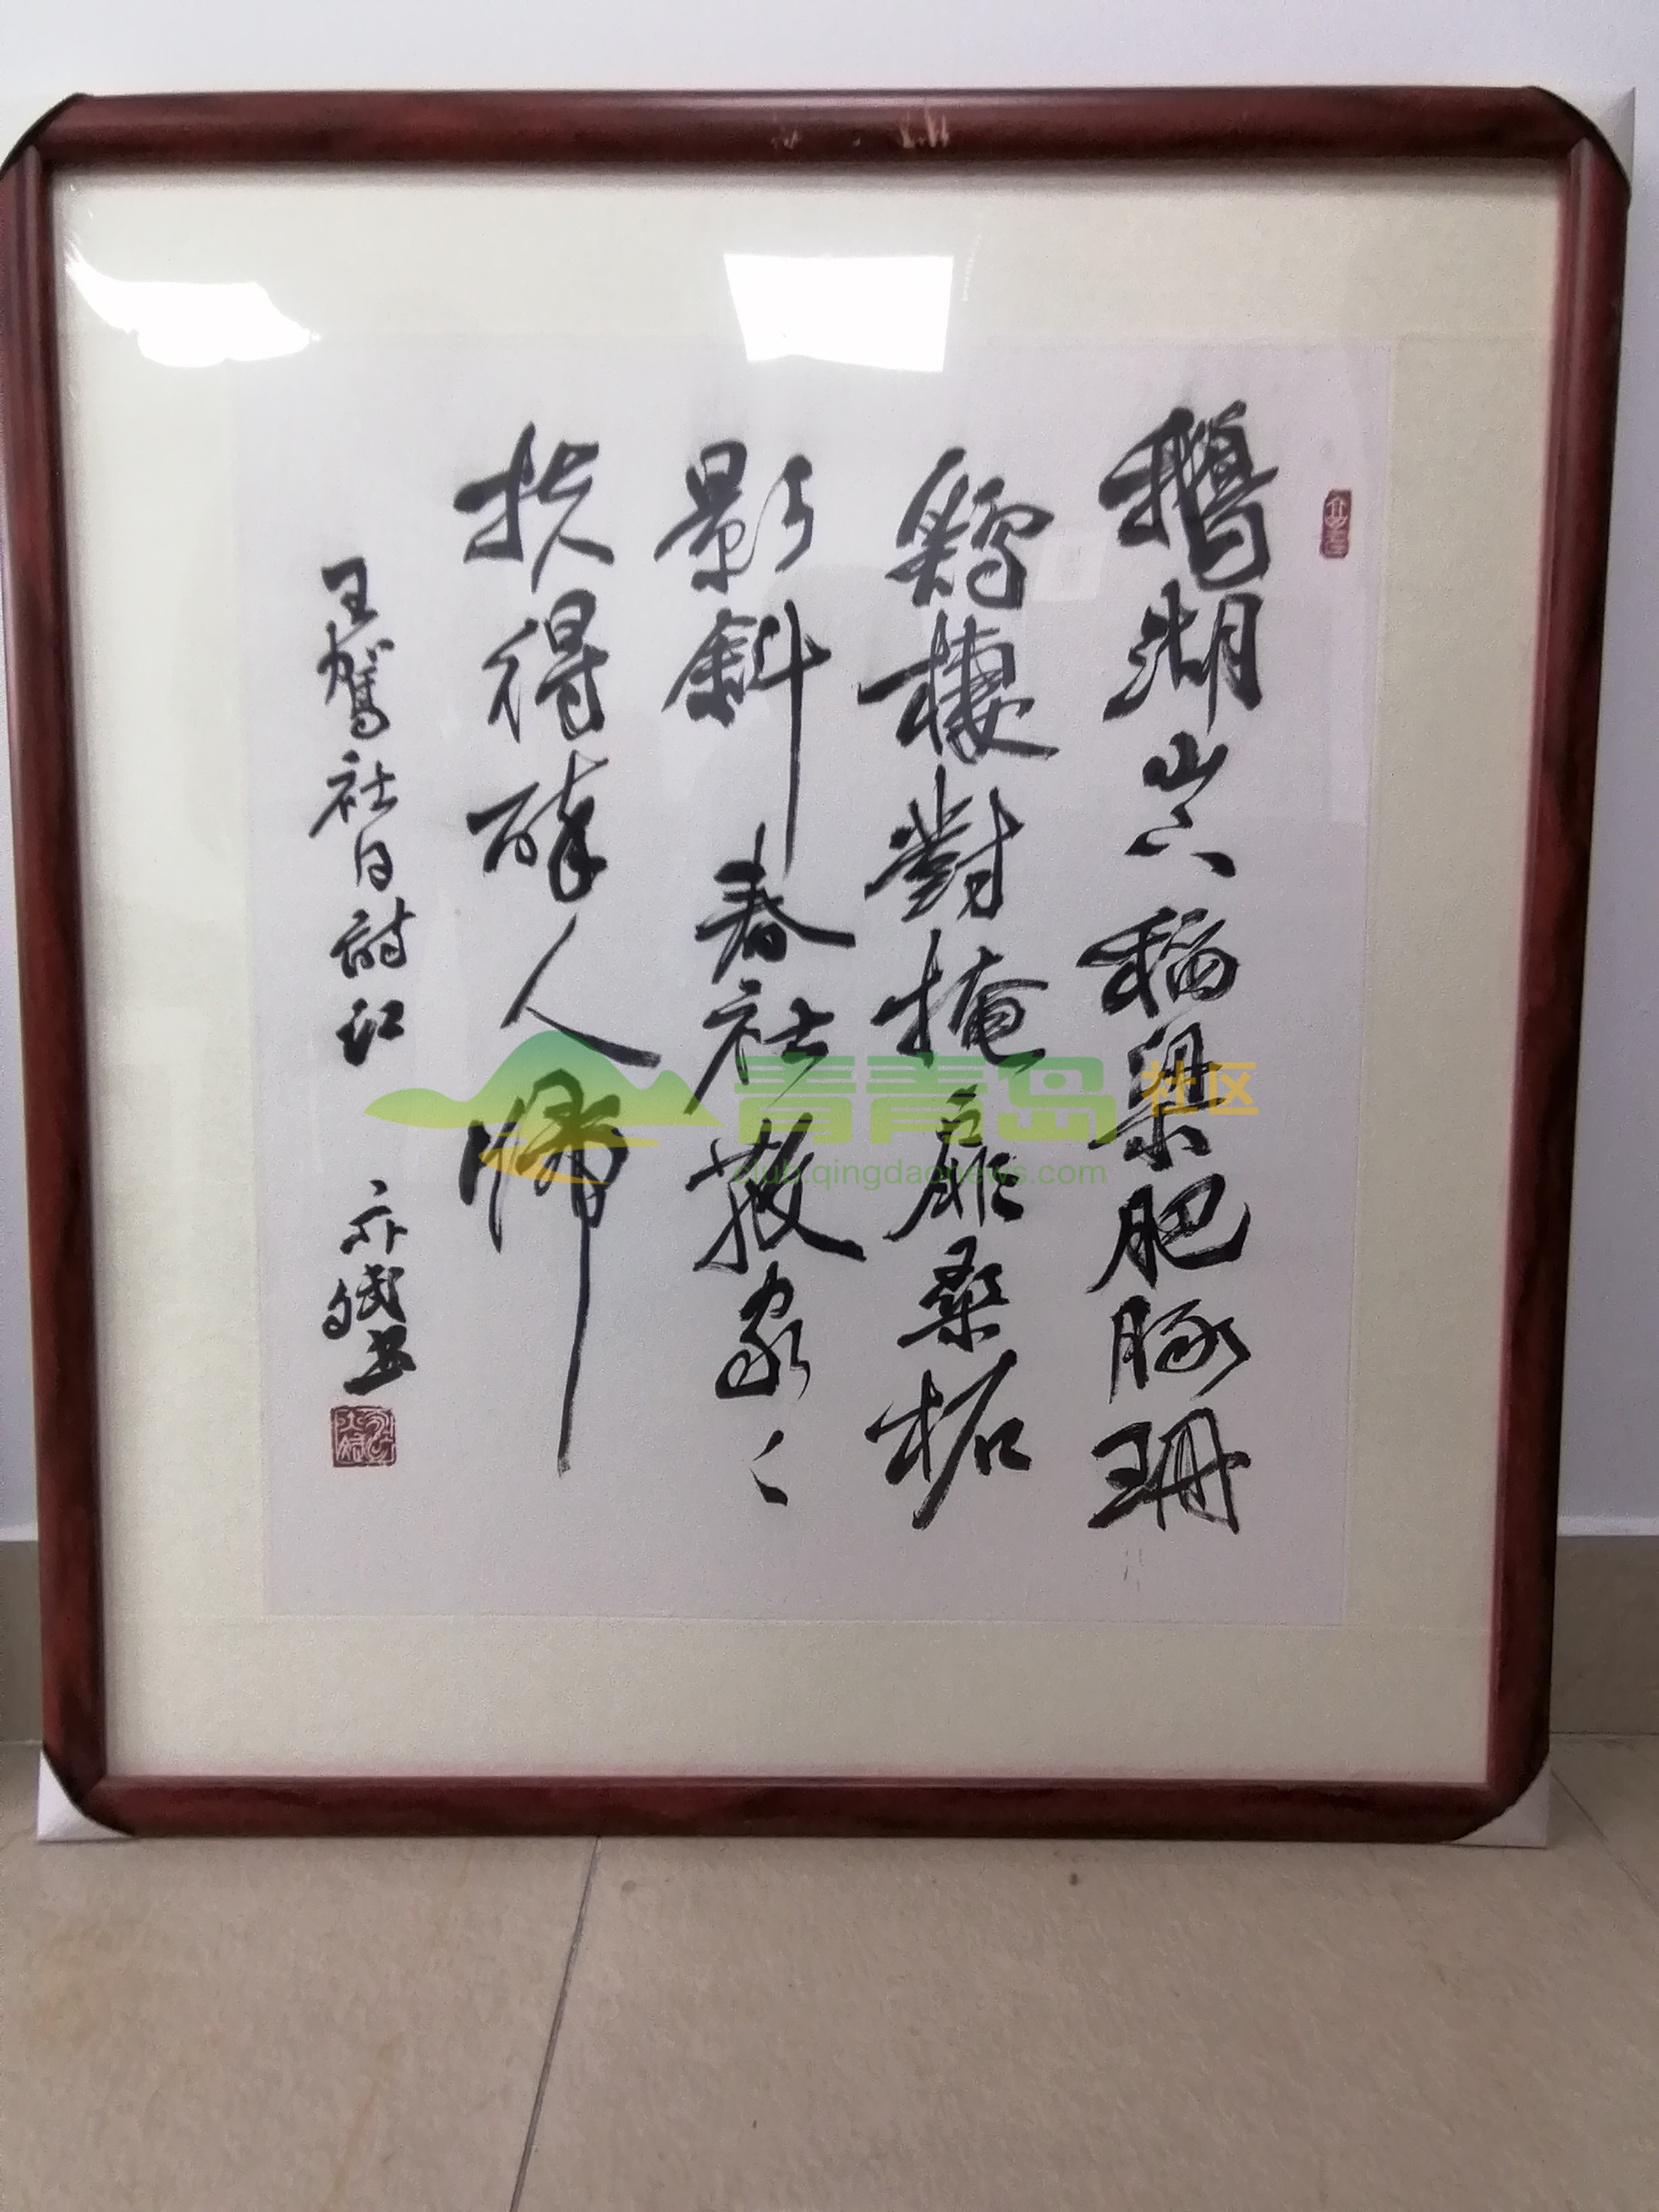 鵝湖山下稻梁肥豚珊
鷄棲對掩扉桑柘
影斜春社散家〻
扶得醉人歸
王駕社日詩江
亦斌書
青青岛社区
club.qingdaonews.com